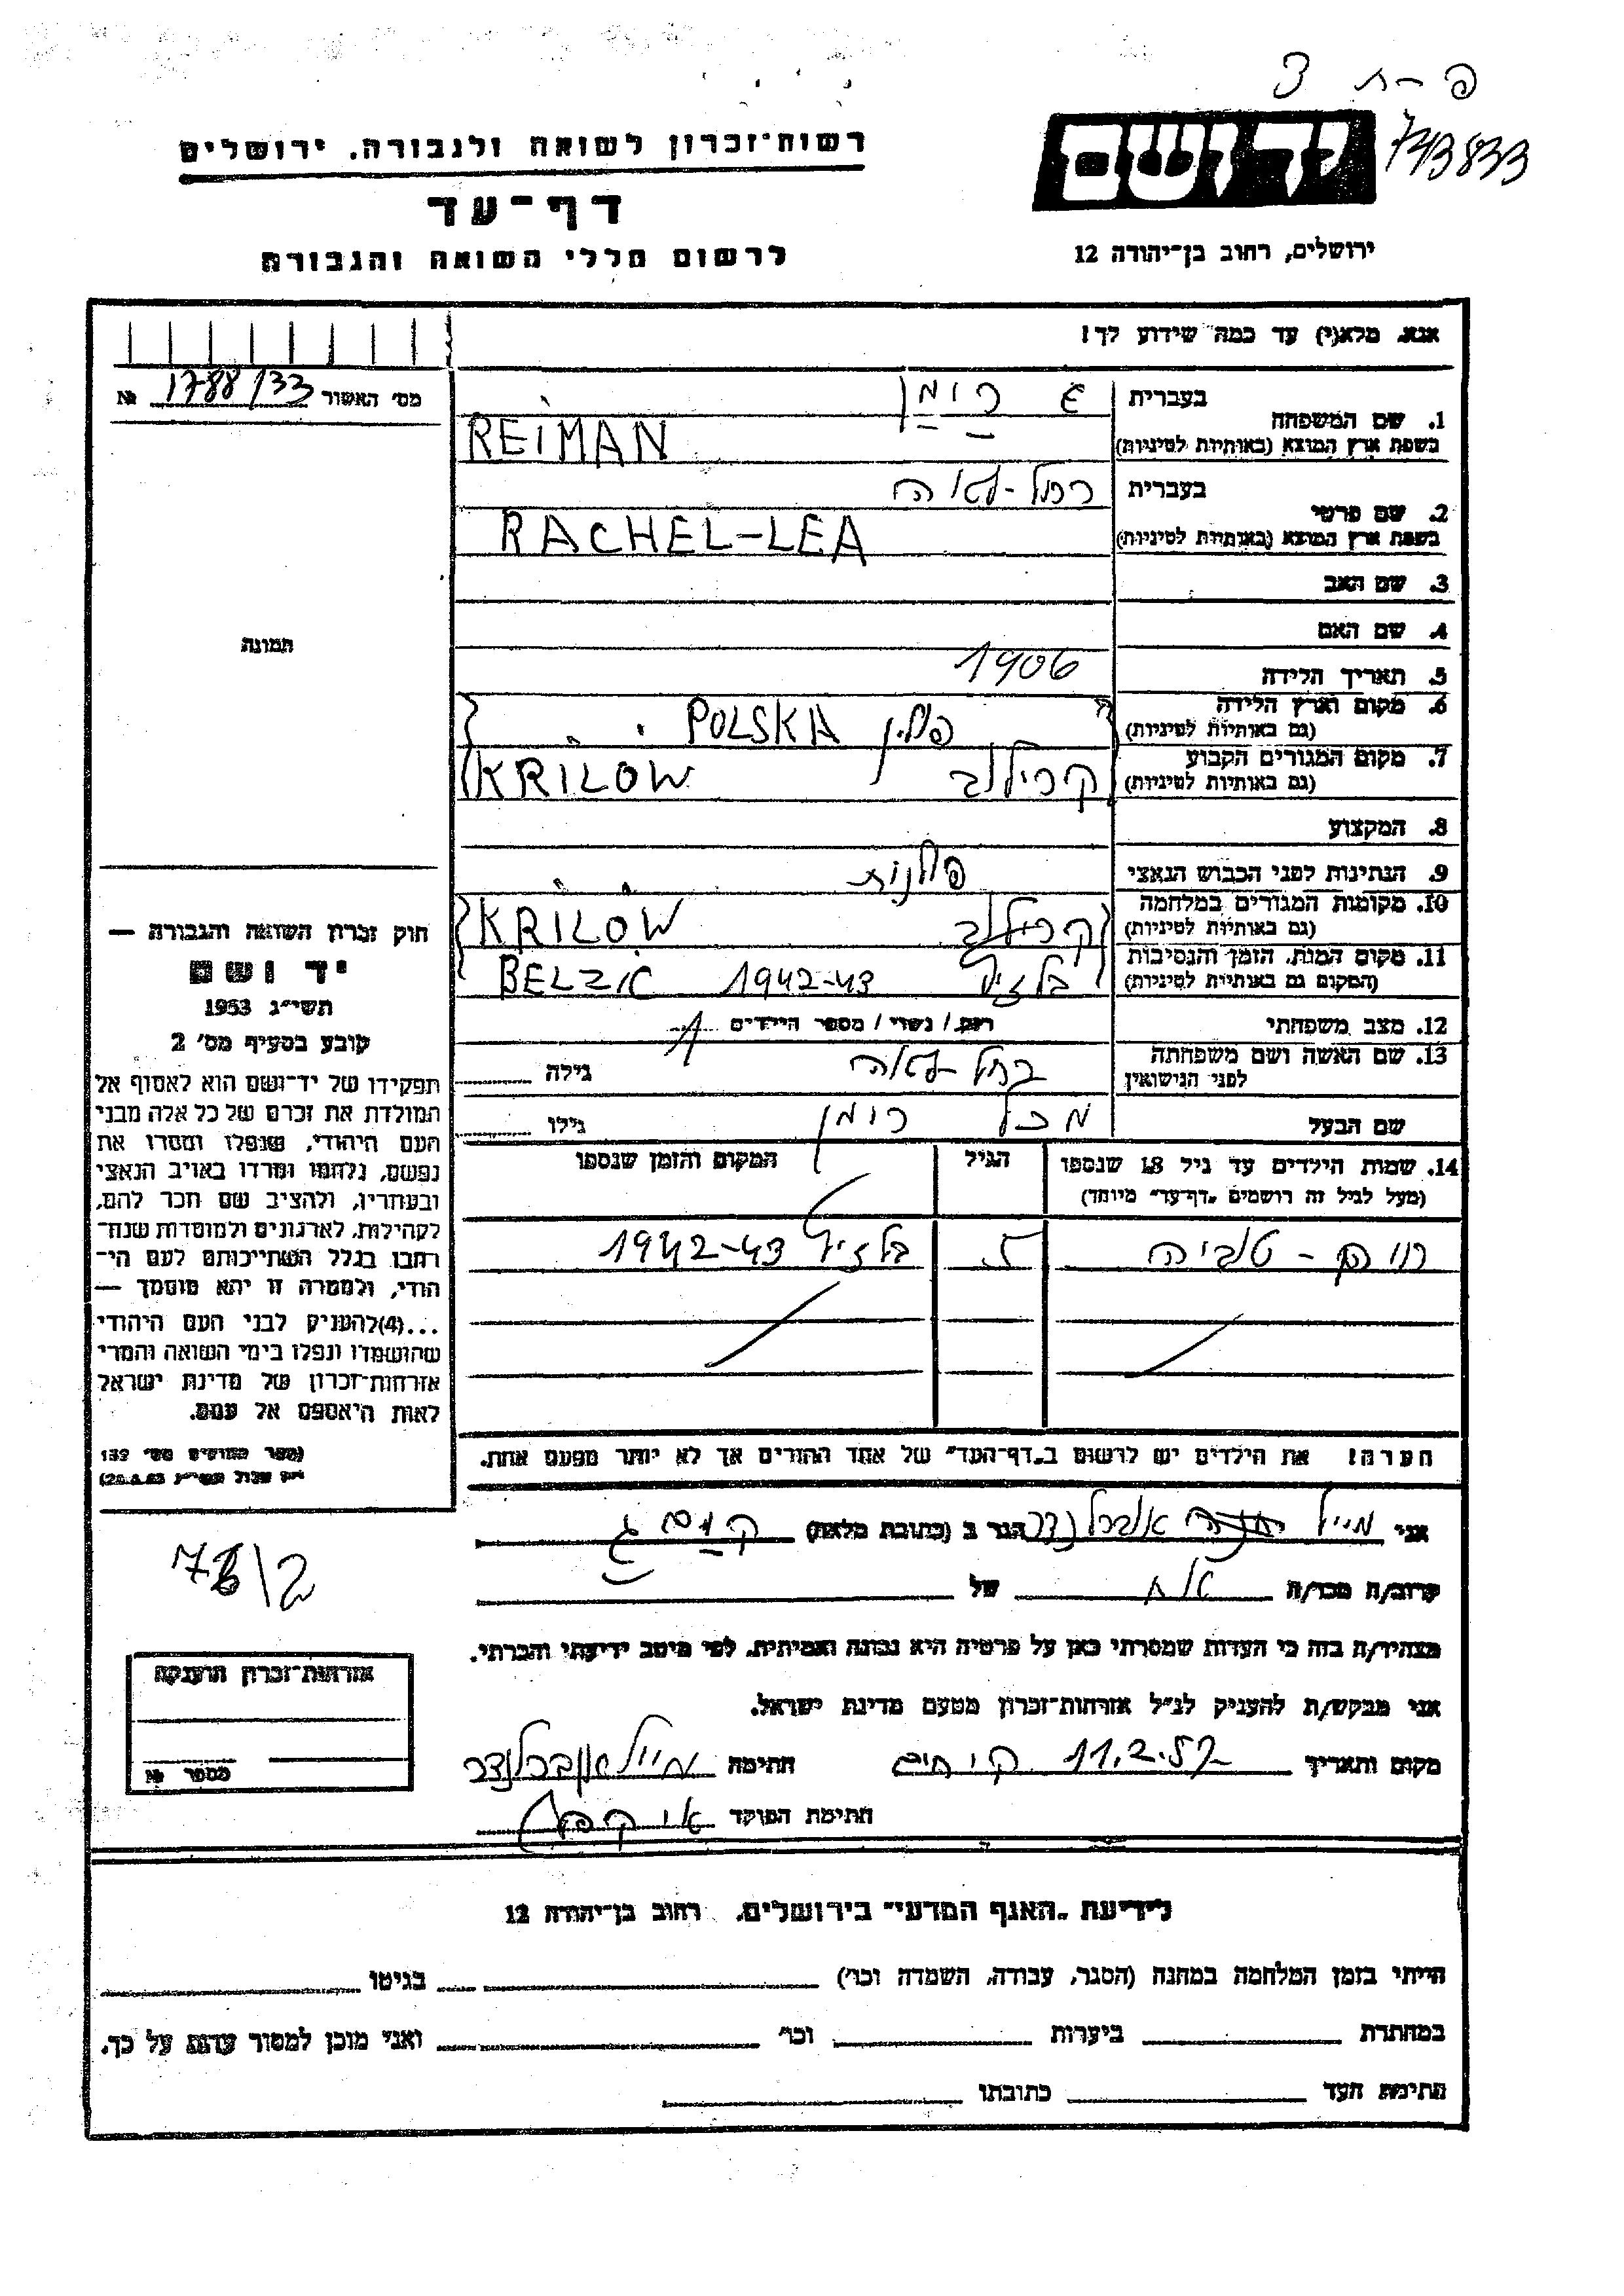 פ-ת 3
743833
יד ושם
ירושלים, רחוב בן־יהודה 12
רשות־זכרון לשואה ולגבורה. ירושלים
דף־עד
לרשום חללי השואה והגבורה
אנא, מלא(י) עד כמה שידוע לך!
מס׳ האשור 1788/33 №
תמונה
1. שם המשפחה
בעברית
רימן
בשפת ארץ המוצא (באותיות לטיניות)
REIMAN
2. שם פרטי
בעברית
רחל-לאה
בשפת ארץ המוצא (באותיות לטיניות)
RACHEL-LEA
3. שם האב
4. שם האם
5. תאריך הלידה
1906
6. מקום וארץ הלידה
(גם באותיות לטיניות)
פולין POLSKA
7. מקום המגורים הקבוע
(גם באותיות לטיניות)
קרילוב KRILOW
8. המקצוע
9. הנתינות לפני הכבוש הנאצי
פולנית
10. מקומות המגורים במלחמה
(גם באותיות לטיניות)
קרילוב KRILOW
11. מקום המות, הזמן והנסיבות
(המקום גם באותיות לטיניות)
1942-43
12. מצב משפחתי
רווק / נשוי / מספר הילדים 1
13. שם האשה ושם משפחתה
לפני הנישואין
רחל-לאה
גילה
שם הבעל
רימן
גילו
14. שמות הילדים עד גיל 18 שנספו
(מעל לגיל זה רושמים "דף־עד" מיוחד)
הגיל
המקום והזמן שנספו
טוביה
5
1942-43
הערה! את הילדים יש לרשום ב"דף־העד" של אחד ההורים אך לא יותר מפעם אחת.
חוק זכרון השואה והגבורה —
יד ושם
תשי״ג 1953
קובע בסעיף מס׳ 2
תפקידו של יד־ושם הוא לאסוף אל
המולדת את זכרם של כל אלה מבני
העם היהודי, שנפלו ומסרו את
נפשם, נלחמו ומרדו באויב הנאצי
ובעוזריו, ולהציב שם וזכר להם,
לקהילות, לארגונים ולמוסדות שנח־
רבו בגלל השתייכותם לעם הי־
הודי, ולמטרה זו יהא מוסמך —
...(4) להעניק לבני העם היהודי
שהושמדו ונפלו בימי השואה והמרי
אזרחות־זכרון של מדינת ישראל
לאות היאספם אל עמם.
(ספר החוקים מס׳ 132
אני
הגר ב (כתובת מלאה)
קרוב/ה מכר/ה
של
מצהיר/ה בזה כי העדות שמסרתי כאן על פרטיה היא נכונה ואמיתית, לפי מיטב ידיעתי והכרתי.
אני מבקש/ת להעניק לנ״ל אזרחות־זכרון מטעם מדינת ישראל.
מקום ותאריך
11.2.57
חתימה
חתימת הפוקד
אזרחות־זכרון הוענקה
מספר №
לידיעת "האגף המדעי" בירושלים, רחוב בן־יהודה 12
הייתי בזמן המלחמה במחנה (הסגר, עבודה, השמדה וכו׳)
בגיטו
במחתרת
ביערות
וכו׳
ואני מוכן למסור עדות על כך.
חתימת העד
כתובתו